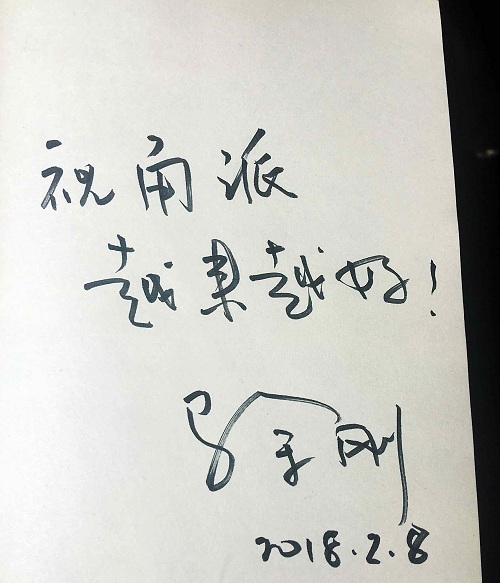 祝角派
越来越好！
刚
2018.2.8